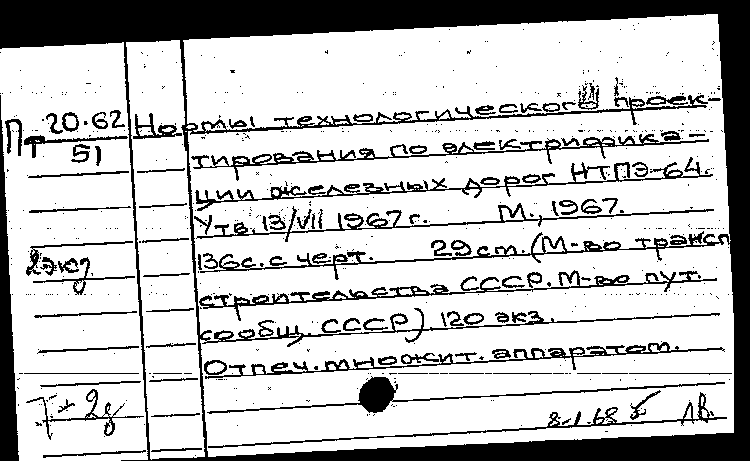 Пт 20.62 Нормы технологического проек-
51 тирования по электрифика-
ции железных дорог НТПЭ-64.
Утв. 13/VII 1967 г. М., 1967.
2 экз 136 с. с черт. 29 см. (М-во трансп
строительства СССР. М-во пут.
сообщ. СССР) 120 экз.
Отпеч. множит. аппаратом.
8-1.68